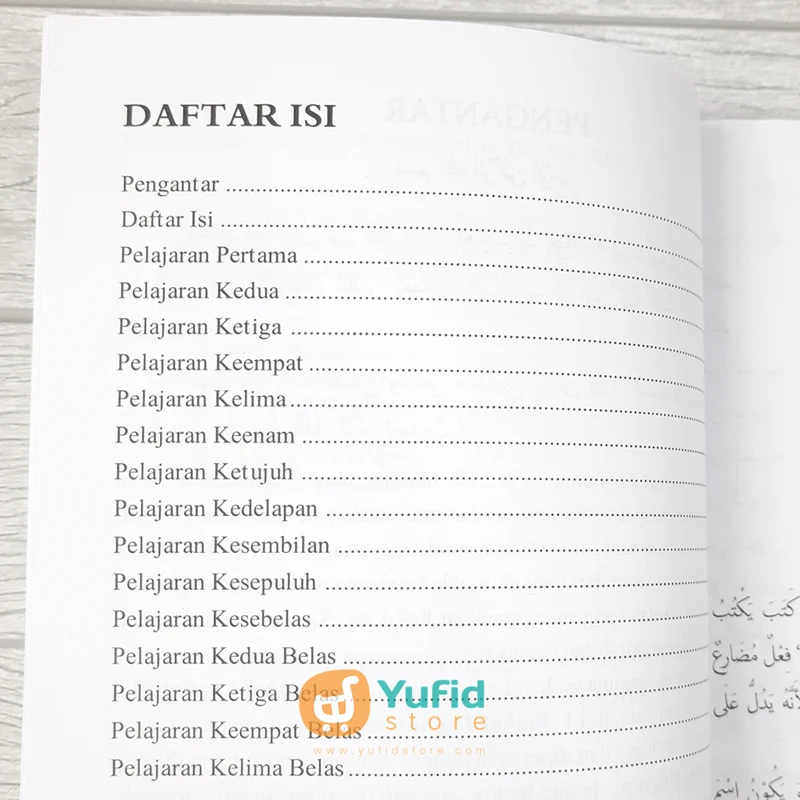 DAFTAR ISI
Pengantar ........................................
Daftar Isi ........................................
Pelajaran Pertama ........................................
Pelajaran Kedua ........................................
Pelajaran Ketiga ........................................
Pelajaran Keempat ........................................
Pelajaran Kelima ........................................
Pelajaran Keenam ........................................
Pelajaran Ketujuh ........................................
Pelajaran Kedelapan ........................................
Pelajaran Kesembilan ........................................
Pelajaran Kesepuluh ........................................
Pelajaran Kesebelas ........................................
Pelajaran Kedua Belas ........................................
Pelajaran Ketiga Belas ........................................
Pelajaran Keempat Belas ........................................
Pelajaran Kelima Belas ........................................
Yufid
store
www.yufidstore.com
كَتَبَ يَكْتُبُ
فِعْلٌ مُضَارِعٌ
لِأَنَّهُ يَدُلُّ عَلَى
يَكُوْنُ اسْمَ